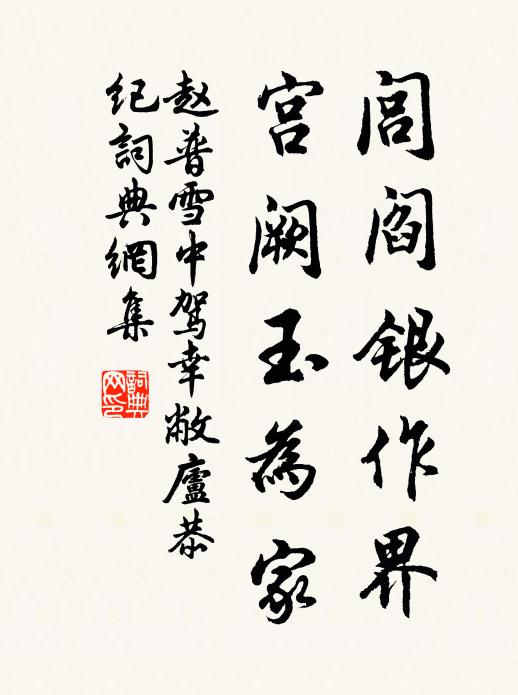 闾阎银作界
宫阙玉為家
赵普雪中驾幸敝廬恭
纪詞典網集
詞典
网印